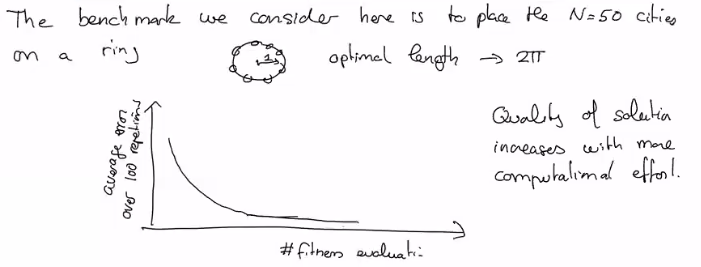 The benchmark we consider here is to place the N=50 cities
on a ring
1
optimal length → 2π
average error
over 100 repetitions
Quality of solution
increases with more
computational effort.
# fitness evaluati